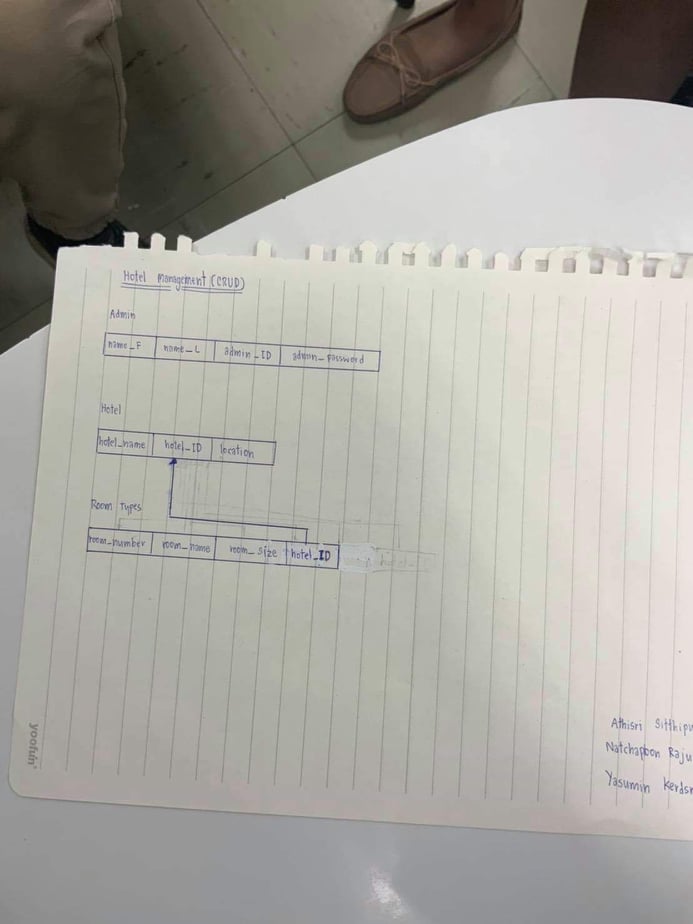 Hotel Management (CRUD)
Admin
name_F name_L admin_ID admin_password
Hotel
hotel_name hotel_ID location
Room Types
room_number room_name room_size hotel_ID
Athisri
Natchapoon
Yasumin
yoofun